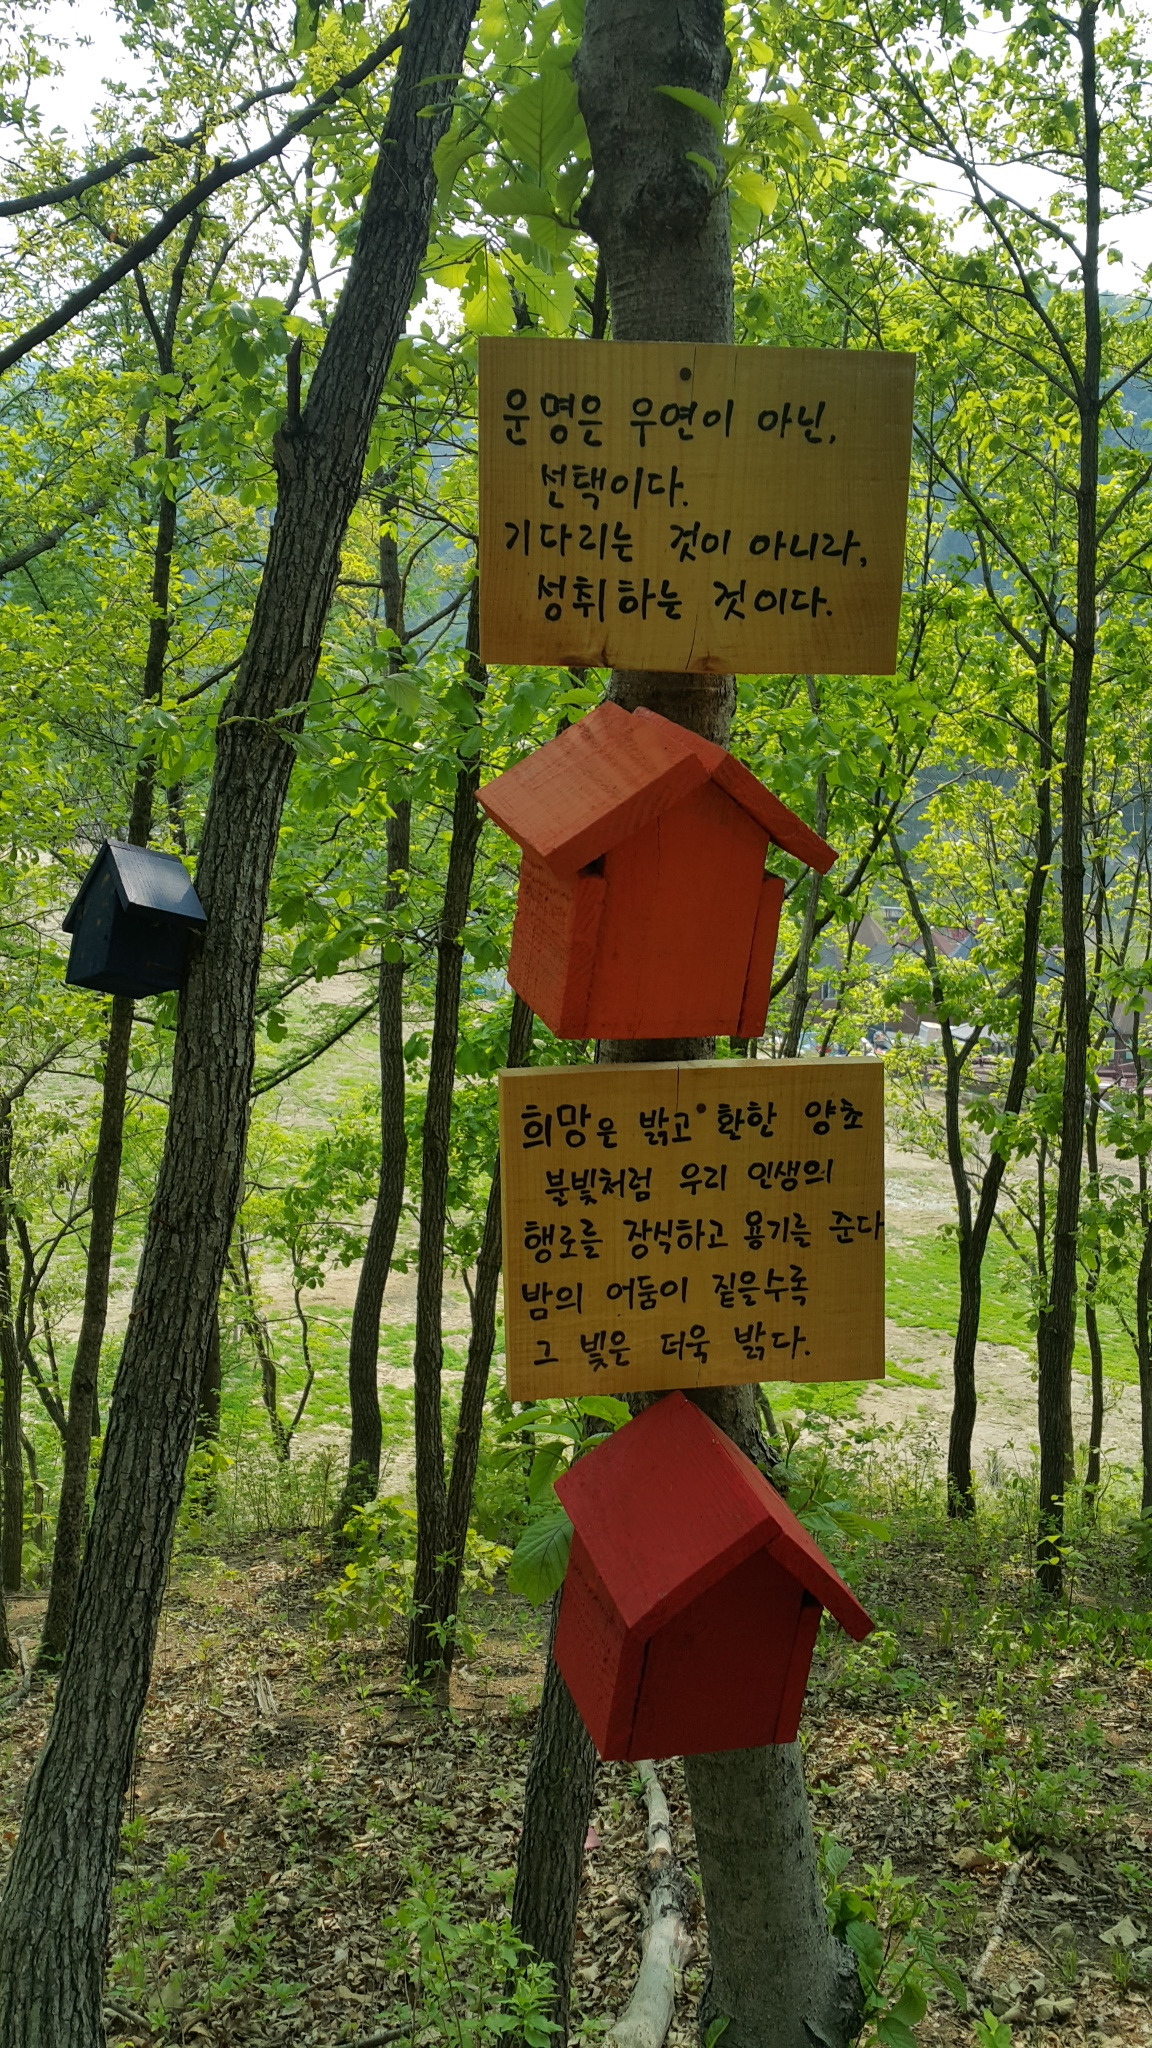 운명은 우연이 아닌,
선택이다.
기다리는 것이 아니라,
성취하는 것이다.
희망은 밝고 환한 양초
불빛처럼 우리 인생의
행로를 장식하고 용기를 준다
밤의 어둠이 짙을수록
그 빛은 더욱 밝다.